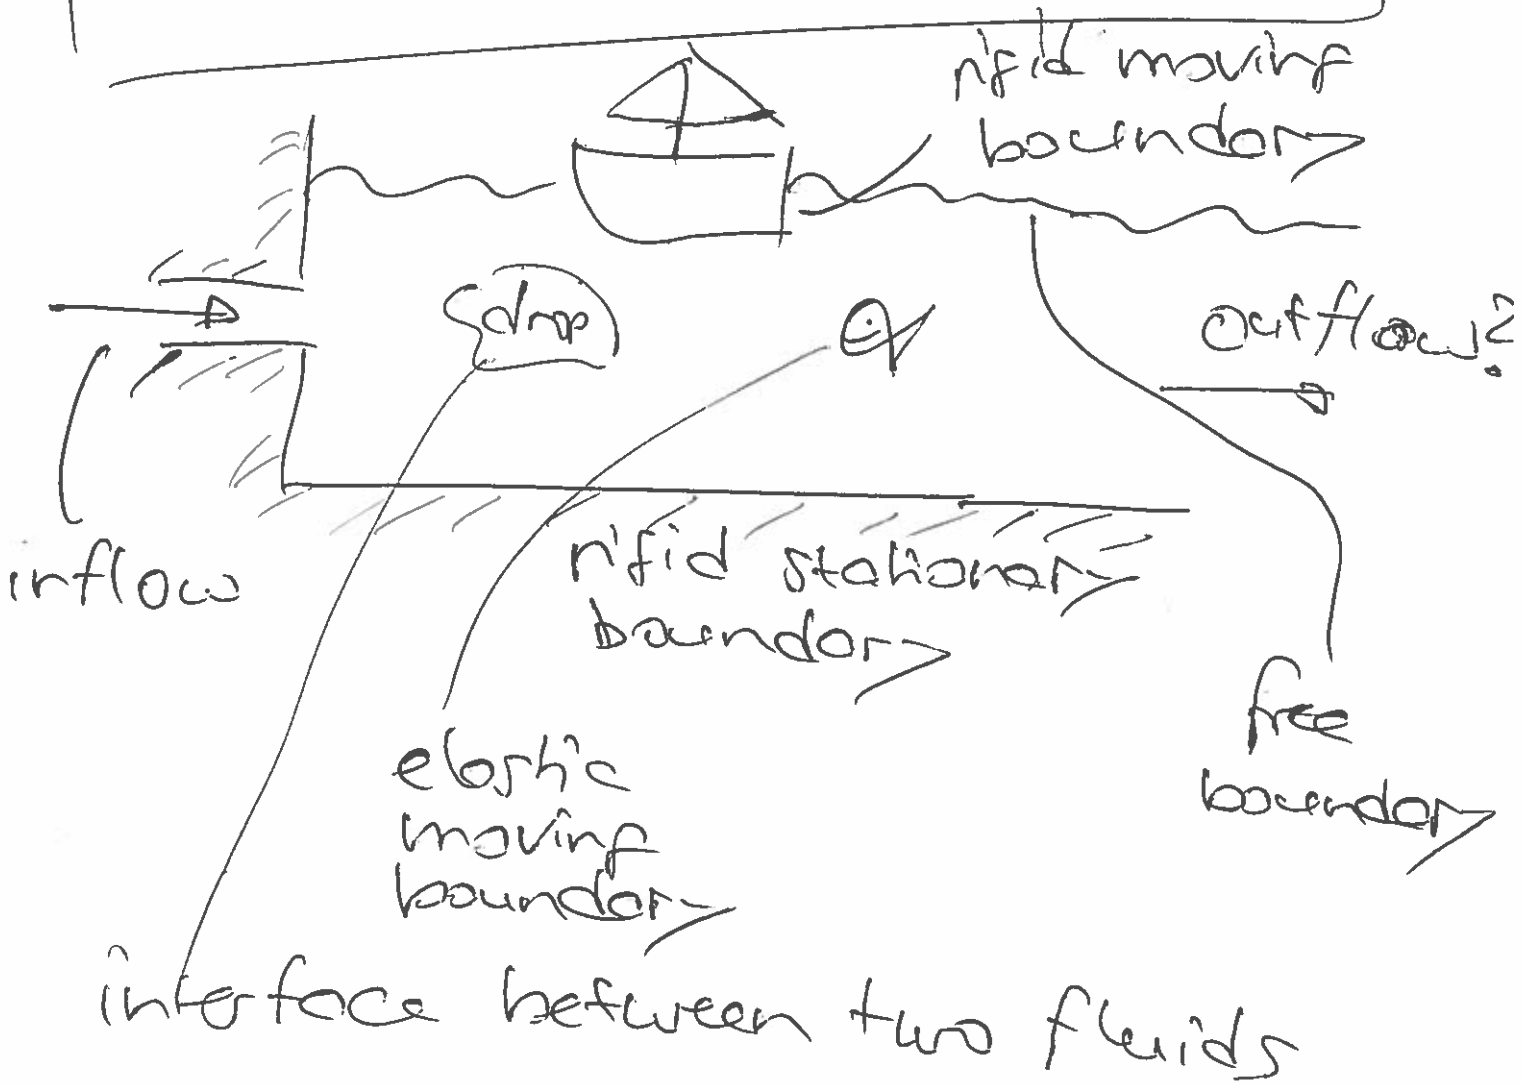 rigid moving
boundary
drop
outflow?
inflow
rigid stationary
boundary
free
boundary
elastic
moving
boundary
interface between two fluids